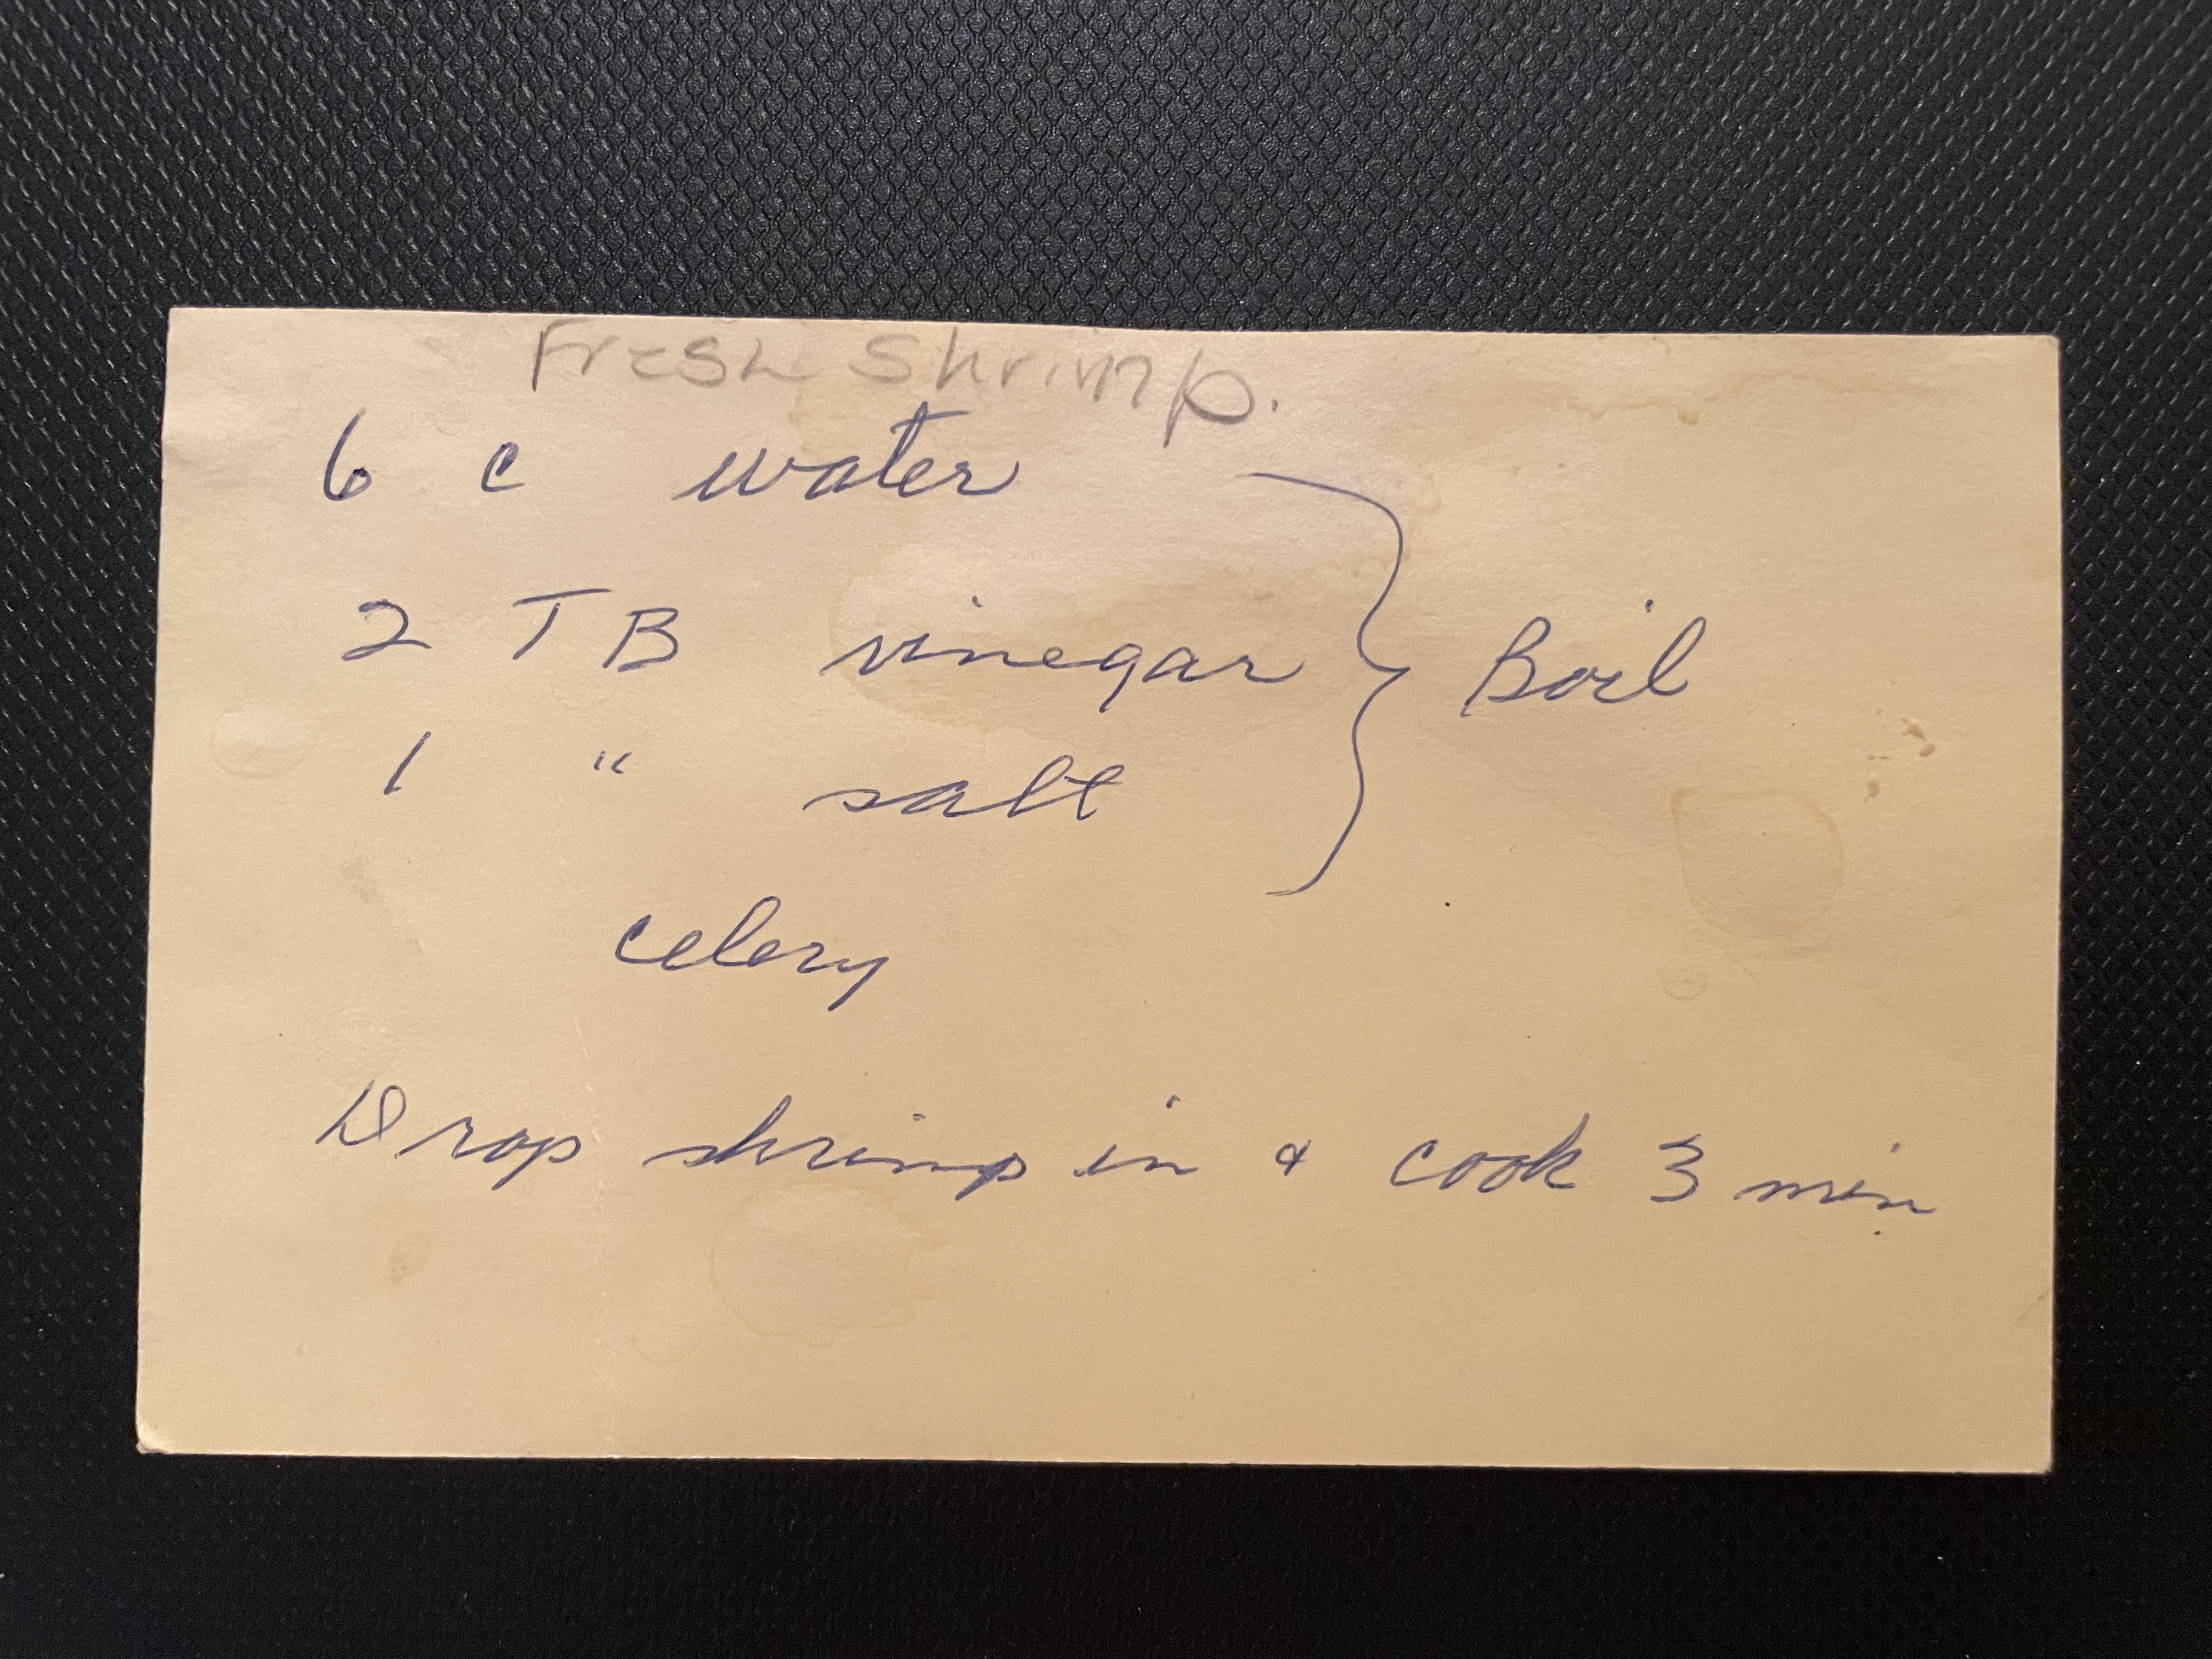 Fresh Shrimp.
6 c water
2 TB vinegar } Boil
1 " salt
celery
Drop shrimp in & cook 3 min